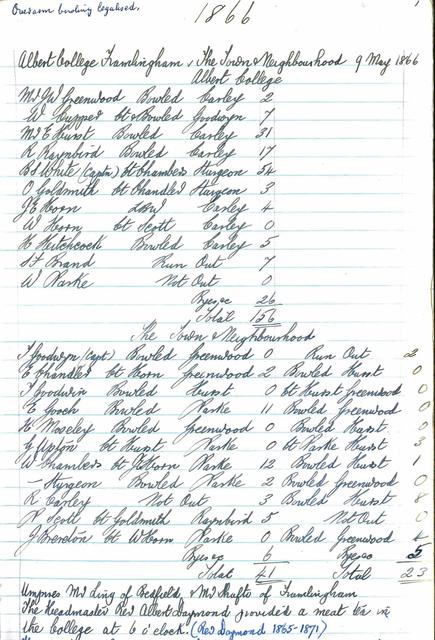 Overarm bowling legalised.
1866
1
Albert College Framlingham v The Town & Neighbourhood 9 May 1866
Albert College
Mr JW Greenwood Bowled Carley 2
W Cupper bt & Bowled Goodwyn 7
Mr E Hurst Bowled Carley 31
R Raynbird Bowled Carley 17
B J White (Captn) bt Chambers Sturgeon 54
O Goldsmith bt Chandler Sturgeon 3
J E Horn LBW Carley 4
W Horn bt Scott Carley 0
H Hitchcock Bowled Carley 5
Brand Run Out 7
W Parke Not Out 0
Byes &c 26
Total 156
The Town & Neighbourhood
T Goodwyn (Capt) Bowled Greenwood 0 Run Out 2
E Chandler bt Horn Greenwood 2 Bowled Hurst 0
T Goodwin Bowled Hurst 0 bt Hurst Greenwood 0
E Gooch Bowled Parke 11 Bowled Greenwood 0
H Moseley Bowled Greenwood 0 Bowled Hurst 0
G Upton bt Hurst Parke 0 bt Parke Hurst 3
W Chambers bt J Horn Parke 12 Bowled Hurst 1
— Sturgeon Bowled Parke 2 Bowled Greenwood 0
R Carley Not Out 3 Bowled Hurst 8
Scott bt Goldsmith Raynbird 5 Not Out 0
J Brereton bt W Horn Parke 0 Bowled Greenwood 4
Byes &c 6 Byes &c 5
Total 41 Total 23
Umpires Mr Ling of Bedfield, & Mr Shafto of Framlingham
The Headmaster Revd Albert Daymond provided a meat tea in
the College at 6 o'clock. (Rev Daymond 1865-1871)